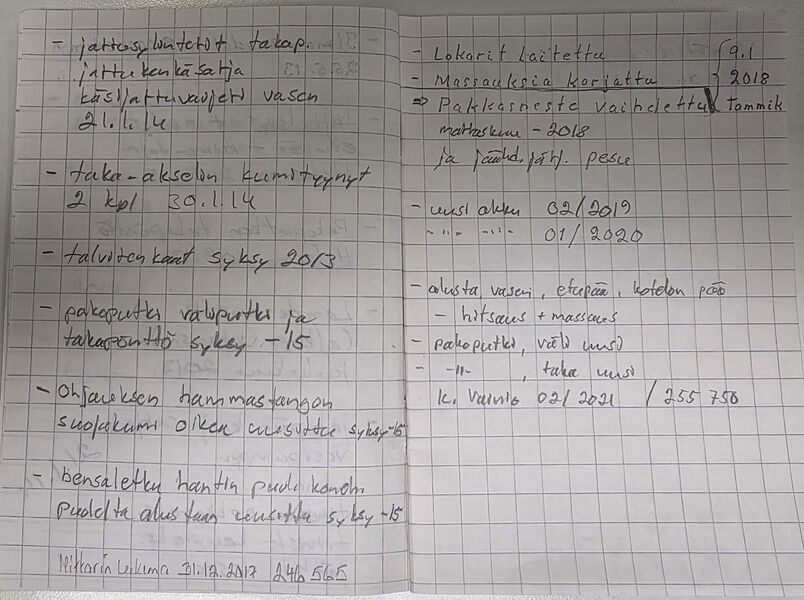 - jarrusylinterit takap.
jarrukenkäsarja
käsijarruvaijeri vasen
21.1.14
- taka-akselin kumityynyt
2 kpl 30.1.14
- talvirenkaat syksy 2013
- pakoputki väliputki ja
takapönttö syksy -15
- Ohjauksen hammastangon
suojakumi oikea uusittu syksy-15
- bensaletku
alustaan uusittu syksy -15
Mittarin lukema 31.12.2017 246 565
- Lokarit laitettu
- Massauksia korjattu
9.1
2018
⇒ Pakkasneste vaihdettu tammik
marraskuu - 2018
ja jäähd. järj. pesu
- uusi akku 02/2019
-"- -"- 01/2020
- alusta vasen, etupää, kotelon pää
- hitsaus + massaus
- pakoputki, väli uusi
- -"- , taka uusi
K. Vainio 02/2021 / 255 750